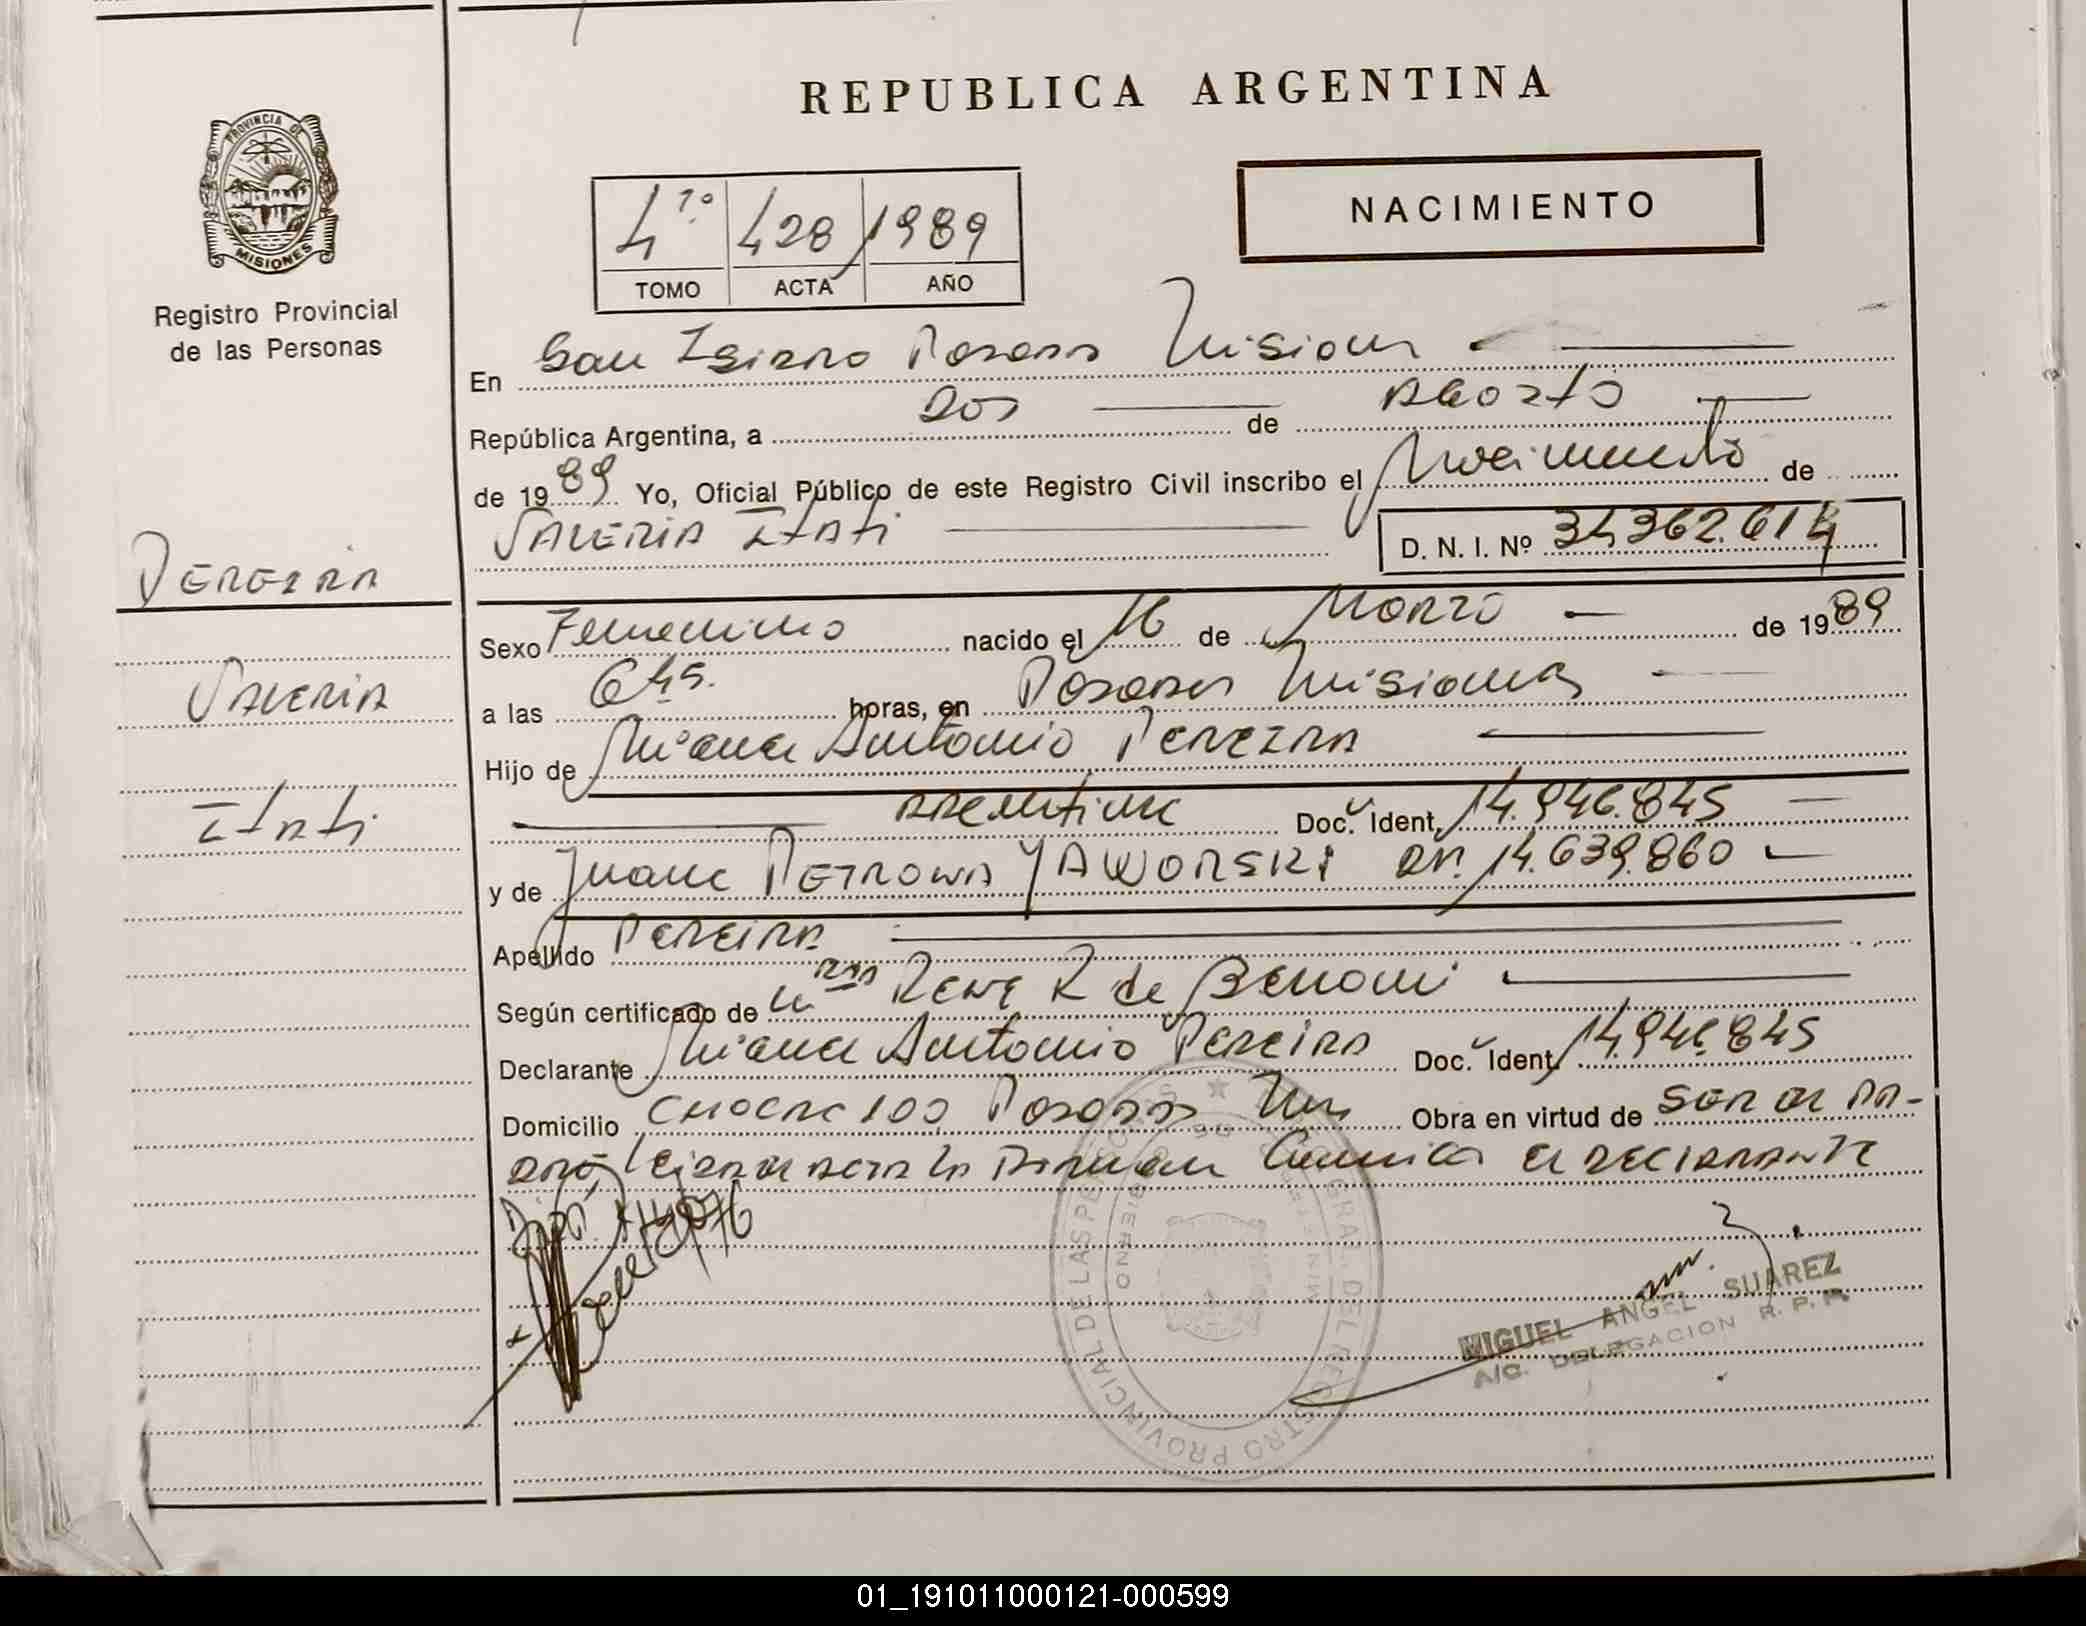 REPUBLICA ARGENTINA
PROVINCIA DE
MISIONES
Registro Provincial
de las Personas
4 1.º 428 1989
TOMO ACTA AÑO
NACIMIENTO
En San Isidro Posadas Misiones
República Argentina, a dos de Agosto
de 1989 Yo, Oficial Público de este Registro Civil inscribo el Nacimiento de
VALERIA ITATI
D. N. I. Nº 34.362.614
PEREIRA
VALERIA
ITATI
Sexo Femenino nacido el 16 de Marzo de 1989
a las 6 hs. horas, en Posadas Misiones
Hijo de Antonio PEREIRA
Argentino Doc. Ident. 14.946.845
y de Juana PETRONA YAWORSKI DNI. 14.639.860
Apellido PEREIRA
Según certificado de RENE R de
Declarante Antonio Pereira Doc. Ident. 14.946.845
Domicilio 100 Posadas Mns Obra en virtud de SER EL PA-
DRE, Leida el acta la firman el DECLARANTE
REGISTRO PROVINCIAL DE LAS PERSONAS
MIGUEL ANGEL SUAREZ
A/C. DELEGACION R. P. P.
01_191011000121-000599